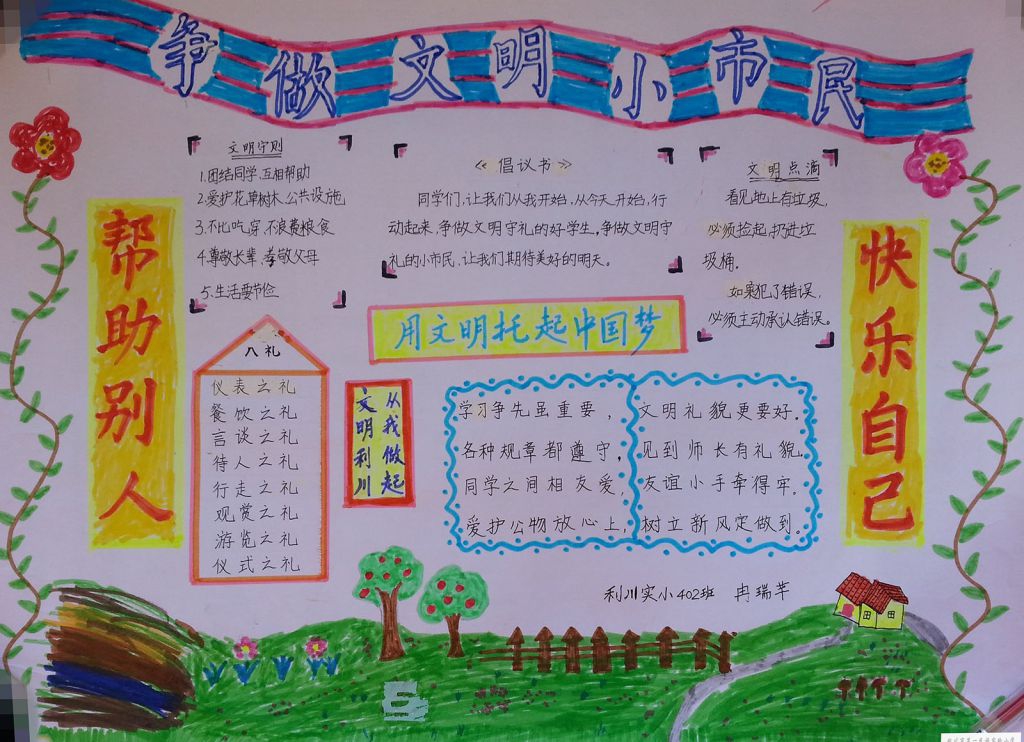 争做文明小市民
帮助别人
文明守则
1.团结同学、互相帮助
2.爱护花草树木、公共设施
3.不比吃、穿、不浪费粮食
4.尊敬长辈、孝敬父母
5.生活要节俭
《倡议书》
同学们,让我们从我开始,从今天开始,行
动起来,争做文明守礼的好学生。争做文明守
礼的小市民、让我们期待美好的明天。
文明点滴
看见地上有垃圾,
必须捡起,扔进垃
圾桶。
如果犯了错误,
必须主动承认错误。
快乐自己
用文明托起中国梦
八礼
仪表之礼
餐饮之礼
言谈之礼
待人之礼
行走之礼
观赏之礼
游览之礼
仪式之礼
从我做起
文明利川
学习争先虽重要,文明礼貌更要好.
各种规章都遵守,见到师长有礼貌.
同学之间相友爱,友谊小手牵得牢.
爱护公物放心上,树立新风定做到.
利川实小402班 冉瑞苹